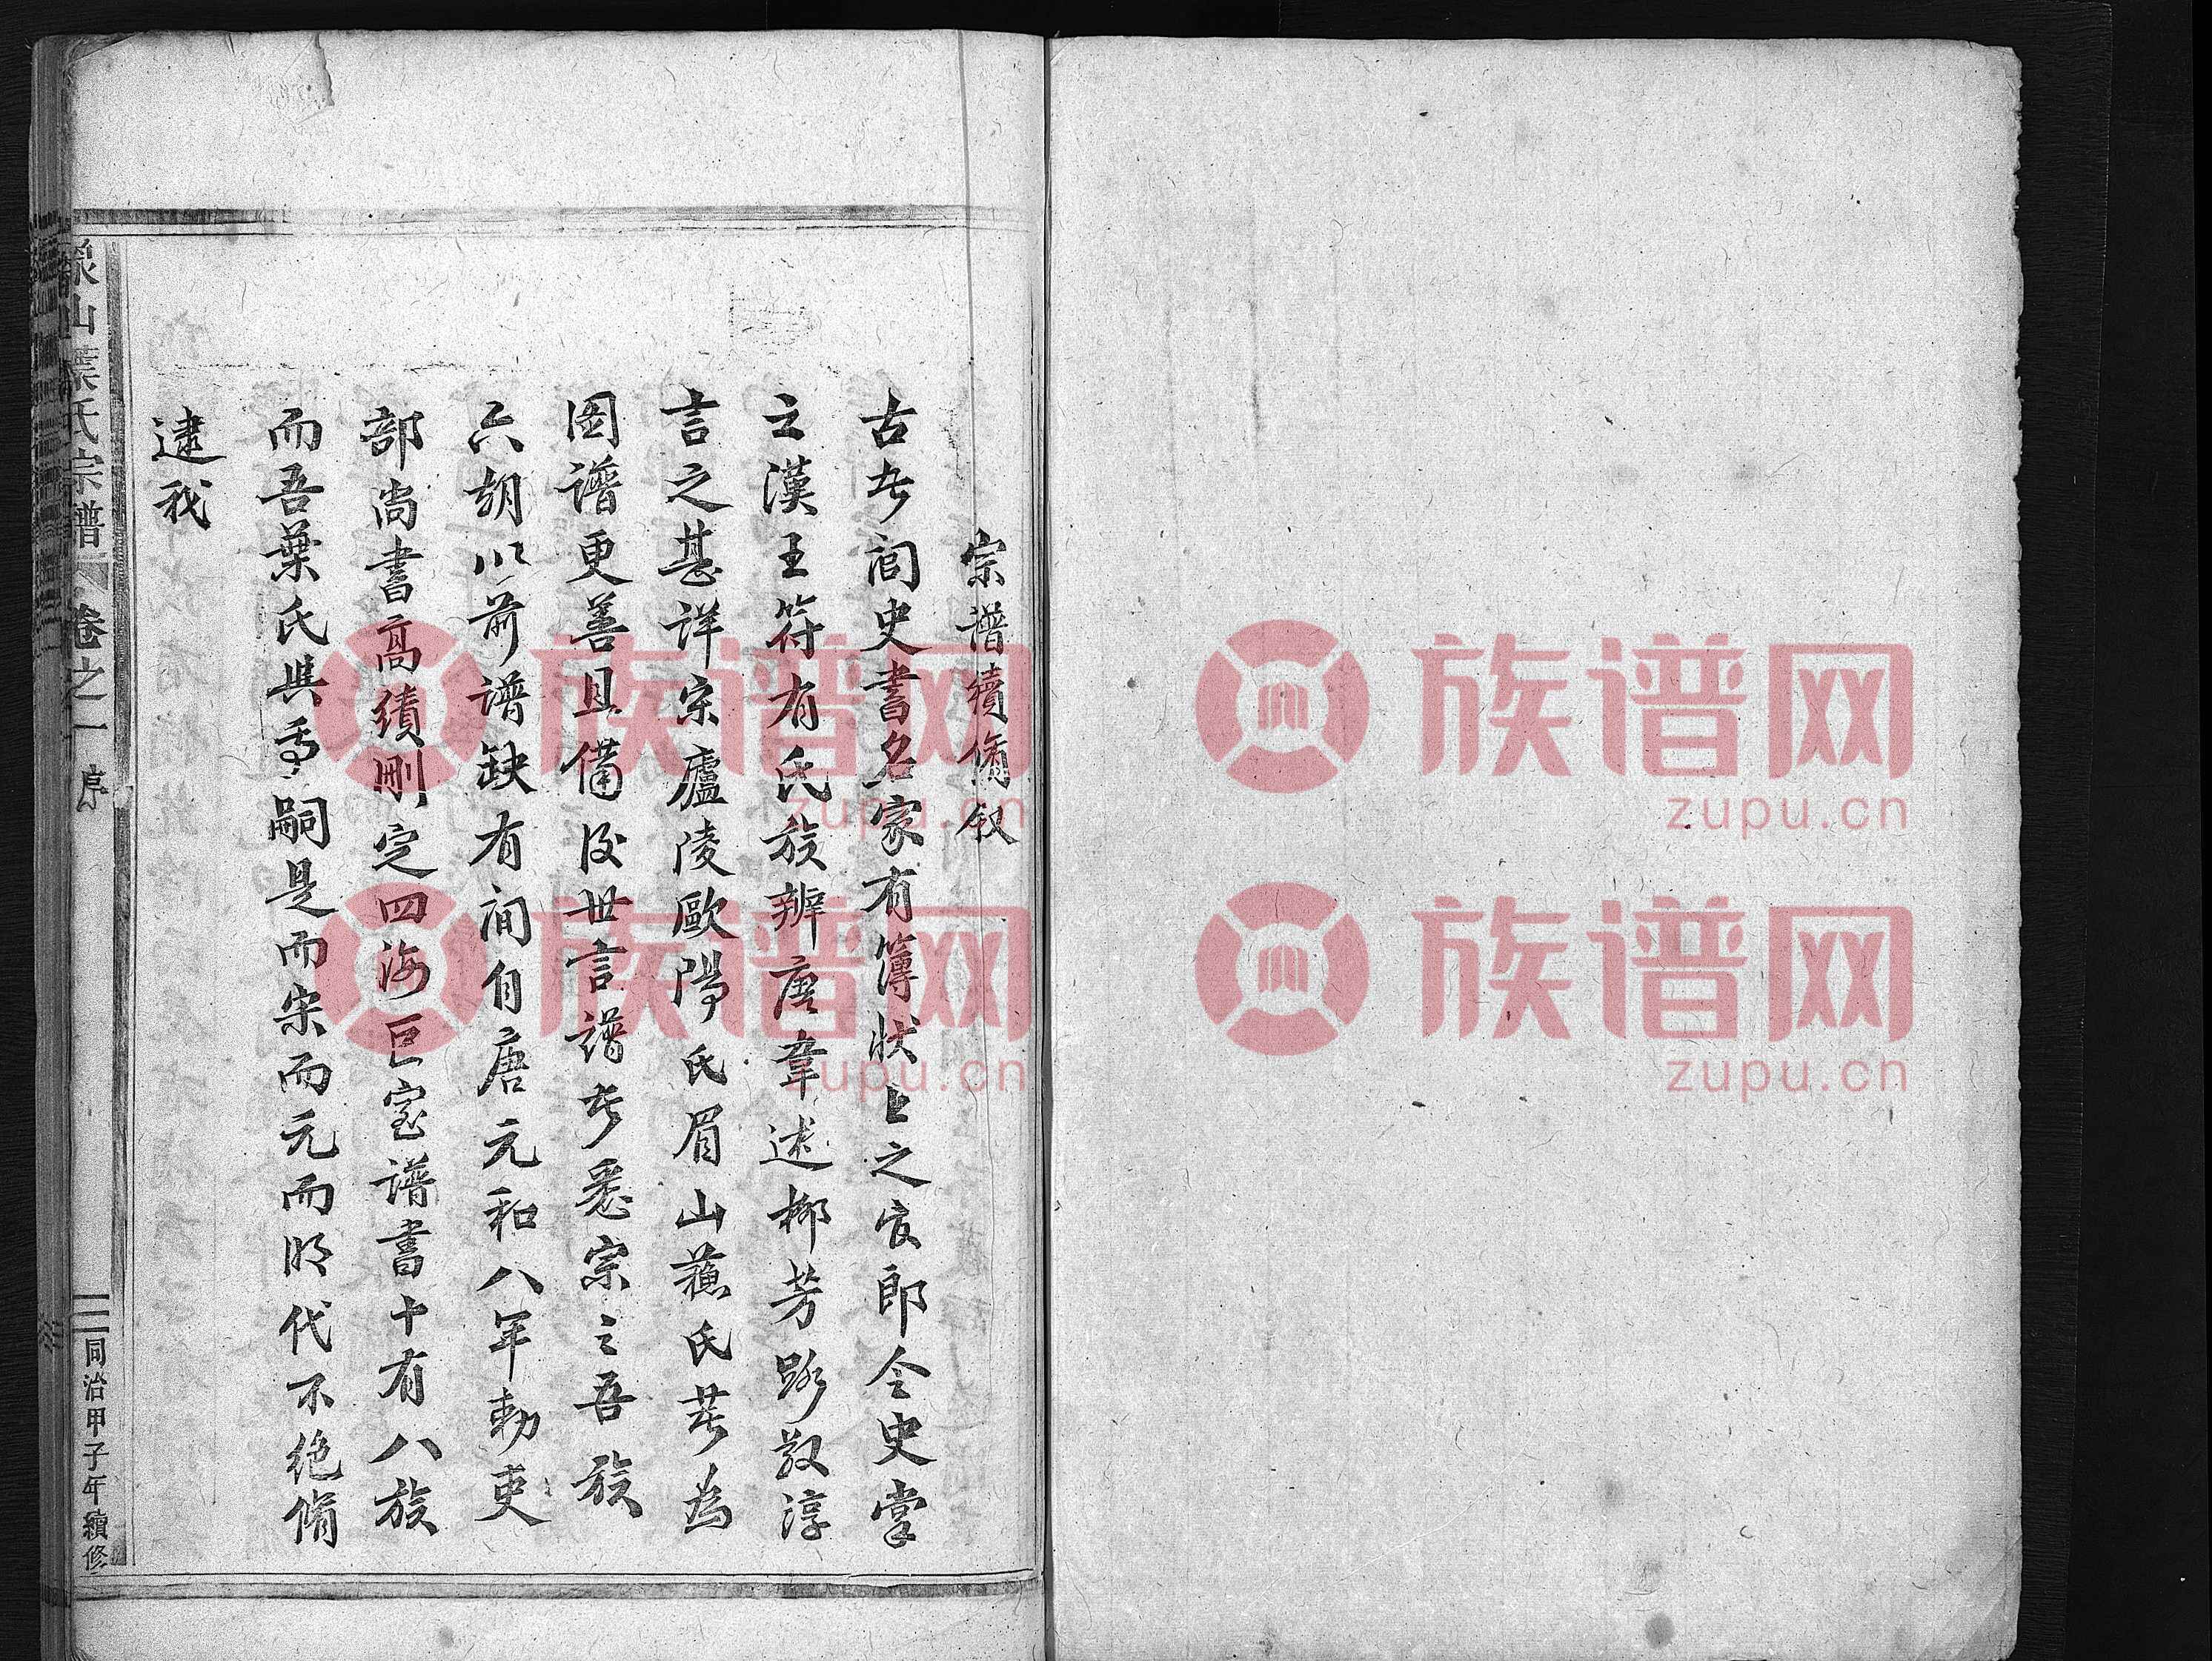 宗譜續脩叙
古者閭史書名家有簿狀上之官郎令史掌
之漢王符有氏族辨唐韋述柳芳路敬淳
言之甚詳宋廬陵歐陽氏眉山蘇氏著為
圖譜更善且備後世言譜者悉宗之吾族
六朝以前譜缺有間自唐元和八年勅吏
部尚書高績刪定四海巨室譜書十有八族
而吾葉氏與焉嗣是而宋而元而明代不絕脩
逮我
山葉氏宗譜 卷之一 序 同治甲子年續修
族谱网 族谱网
zupu.cn zupu.cn
族谱网 族谱网
zupu.cn zupu.cn